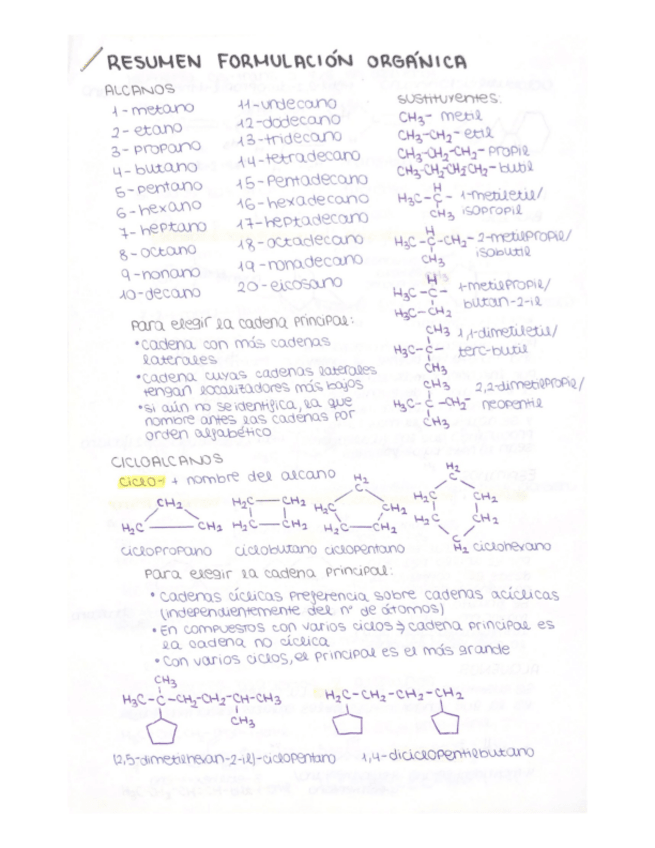 RESUMEN FORMULACIÓN ORGÁNICA
ALCANOS
1-metano
2-etano
3-propano
4-butano
5-pentano
6-hexano
7-heptano
8-octano
9-nonano
10-decano
11-undecano
12-dodecano
13-tridecano
14-tetradecano
15-pentadecano
16-hexadecano
17-heptadecano
18-octadecano
19-nonadecano
20-eicosano
sustituyentes:
CH3- metil
CH3-CH2- etil
CH3-CH2-CH2- propil
CH3-CH2CH2CH2- butil
H
H3C-C- 1-metiletil/
CH3 isopropil
H
H3C-C-CH2- 2-metilpropil/
CH3 isobutil
H
H3C-C- 1-metilpropil/
H3C-CH2 butan-2-il
CH3 1,1-dimetiletil/
H3C-C- terc-butil
CH3
CH3 2,2-dimetilpropil/
H3C-C-CH2- neopentil
CH3
Para elegir la cadena principal:
•Cadena con más cadenas
laterales
•Cadena cuyas cadenas laterales
tengan localizadores más bajos
•Si aún no se identifica, la que
nombre antes las cadenas por
orden alfabético
CICLOALCANOS
ciclo- + nombre del alcano
CH2
H2C CH2
ciclopropano
H2C CH2
H2C CH2
ciclobutano
H2
C
H2C CH2
H2C CH2
ciclopentano
H2
C
H2C CH2
H2C CH2
C
H2 ciclohexano
Para elegir la cadena principal:
• Cadenas cíclicas preferencia sobre cadenas acíclicas
(independientemente del nº de átomos)
• En compuestos con varios ciclos → cadena principal es
la cadena no cíclica
• Con varios ciclos, el principal es el más grande
CH3
H3C-C-CH2-CH2-CH-CH3
CH3
H2C-CH2-CH2-CH2
(2,5-dimetilhexan-2-il)-ciclopentano
1,4-diciclopentilbutano